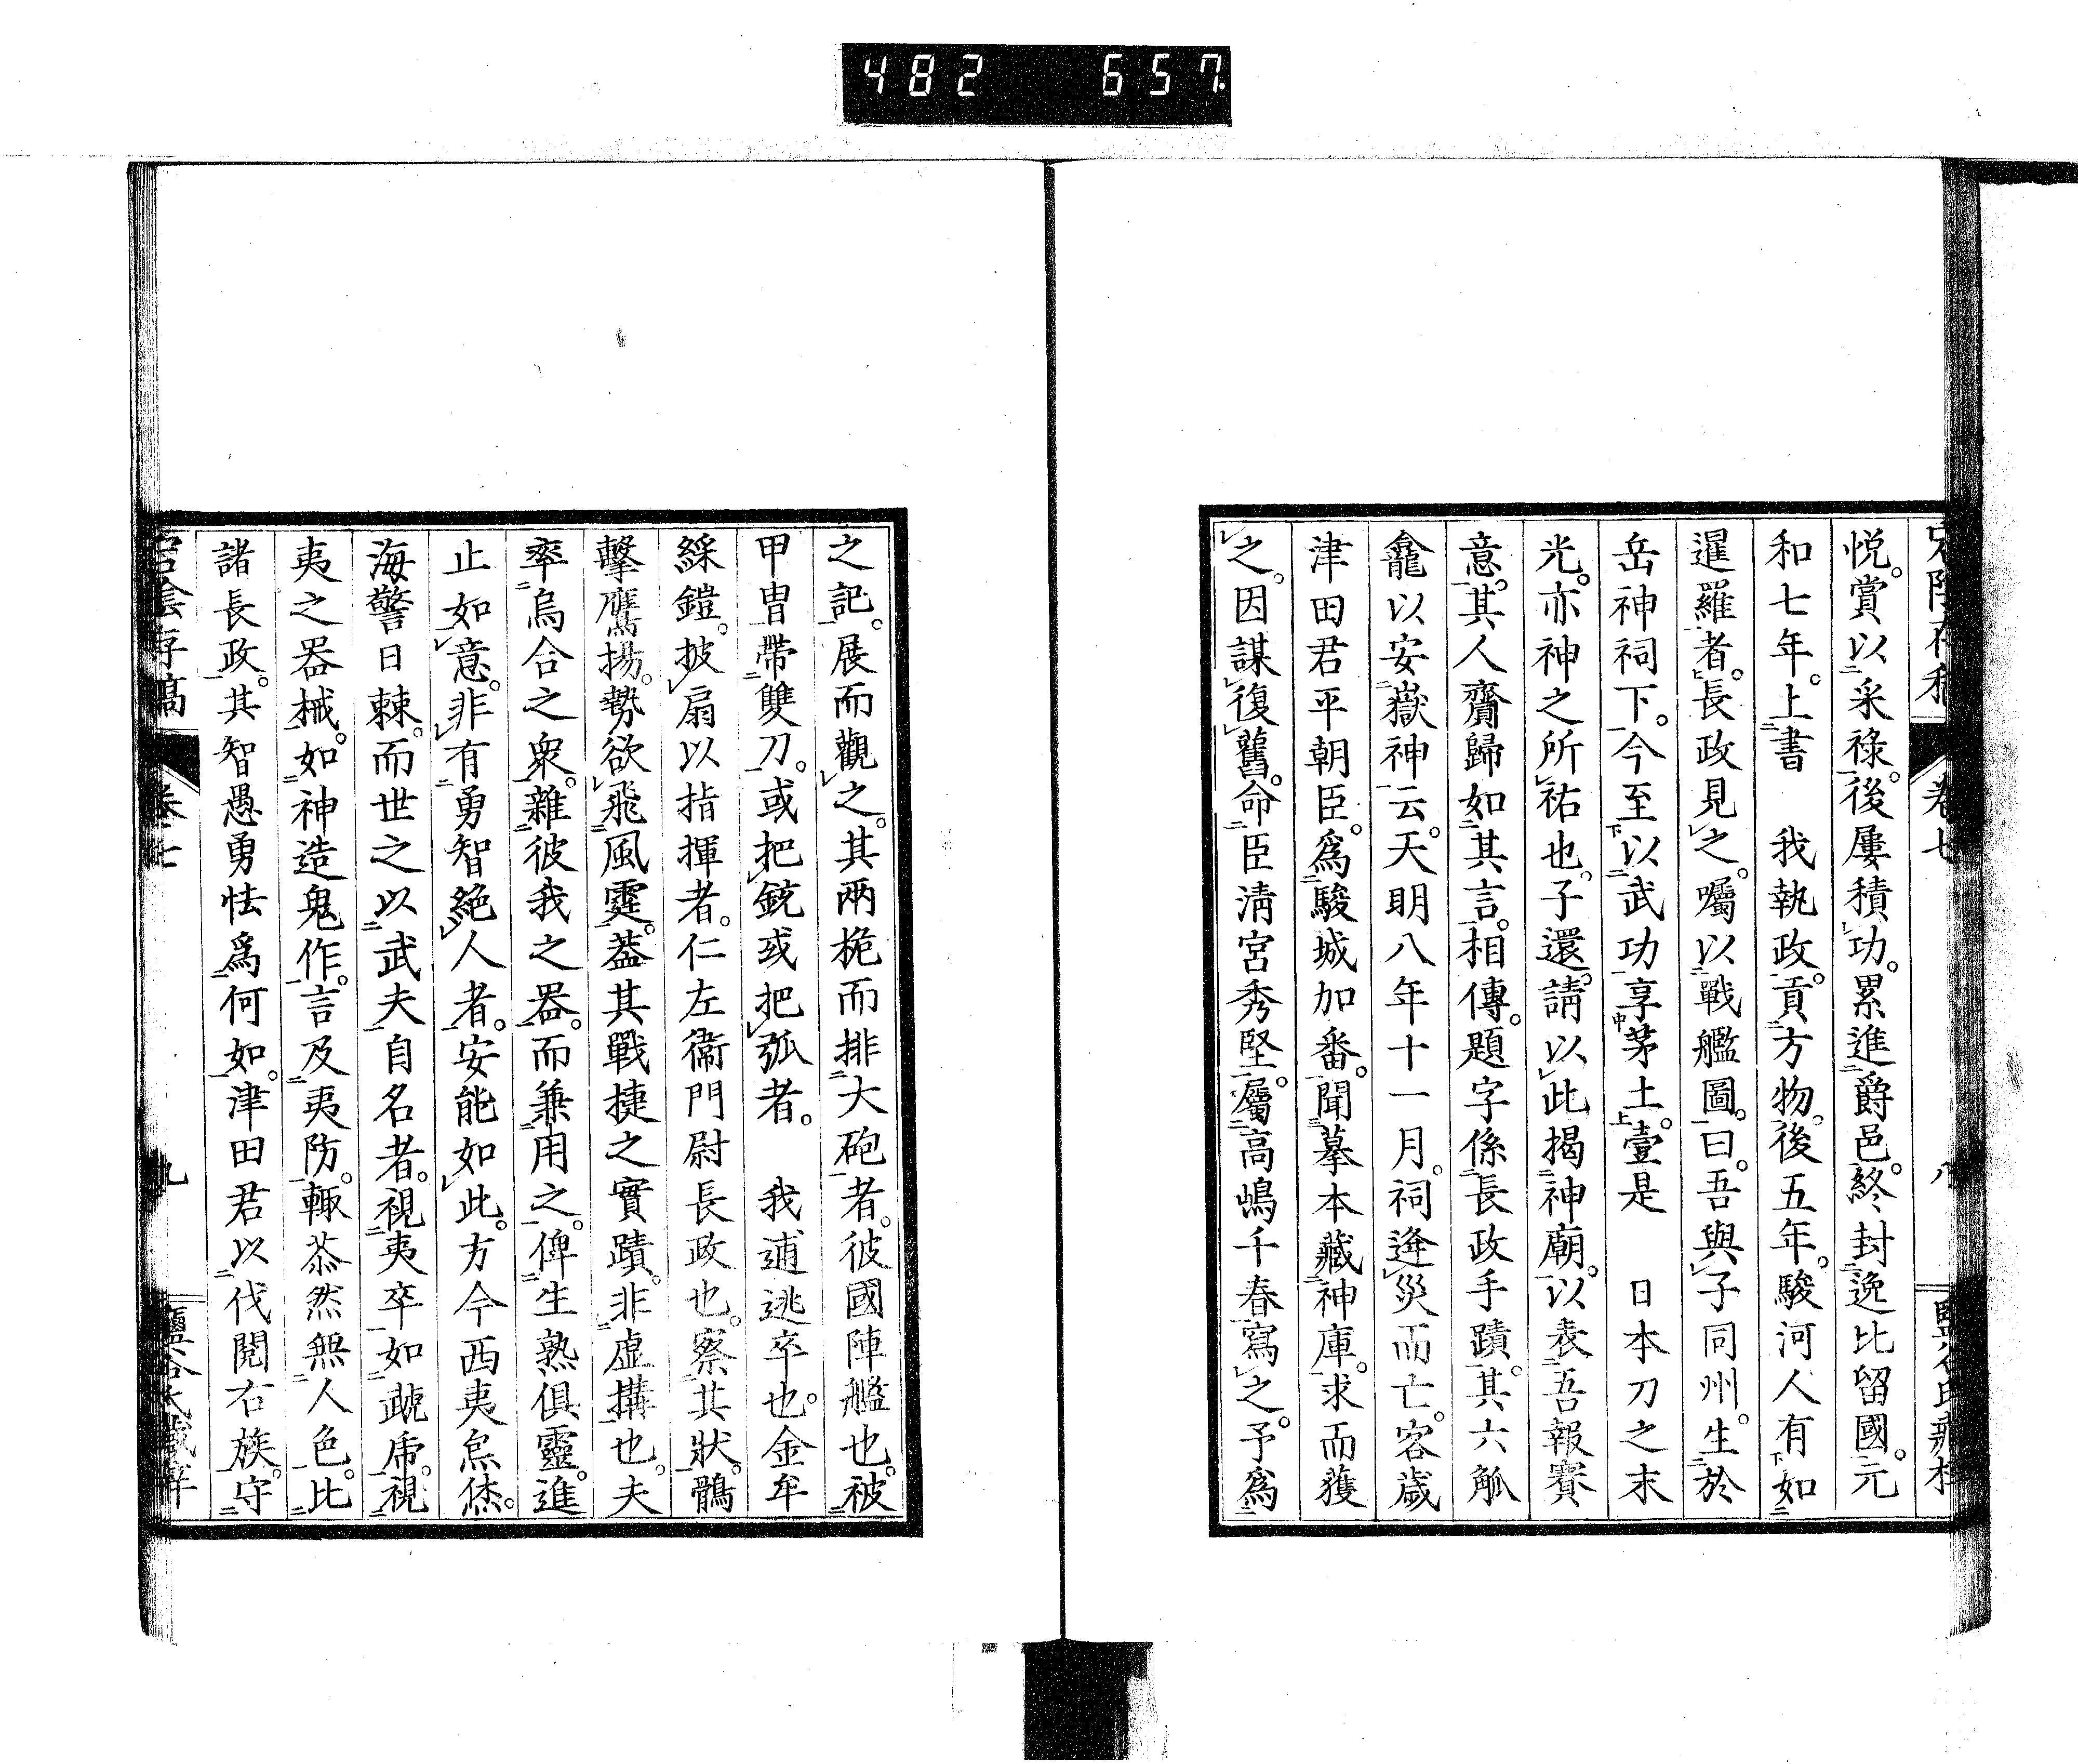 482 657
卷七
八
悦。賞以采祿。後屢積功。累進爵邑。終封逸比留國。元
和七年。上書　我執政。貢方物。後五年。駿河人有如
暹羅者。長政見之。囑以戰艦圖。曰。吾與子同州。生於
岳神祠下。今至以武功享茅土。壹是　日本刀之末
光。亦神之所祐也。子還。請以此揭神廟。以表吾報賽
意。其人齎歸如其言。相傳。題字係長政手蹟。其六觚
龕以安嶽神云。天明八年十一月。祠逢災而亡。客歲
津田君平朝臣。爲駿城加番。聞摹本藏神庫。求而獲
之。因謀復舊。命臣淸宮秀堅。屬高嶋千春寫之。予爲
之記。展而觀之。其兩桅而排大砲者。彼國陣艦也。被
甲冑帶雙刀。或把銃或把弧者。　我逋逃卒也。金牟
綵鎧。披扇以指揮者。仁左衞門尉長政也。察其狀。鶻
擊鷹揚。勢欲飛風霆。葢其戰捷之實蹟。非虛搆也。夫
率烏合之衆。雜彼我之器。而兼用之。俾生熟俱靈。進
止如意。非有勇智絶人者。安能如此。方今西夷炰烋。
海警日棘。而世之以武夫自名者。視夷卒如虣虎。視
夷之器械。如神造鬼作。言及夷防。輙恭然無人色。比
諸長政。其智愚勇怯爲何如。津田君以伐閱右族。守
宕陰存稿
卷七
九